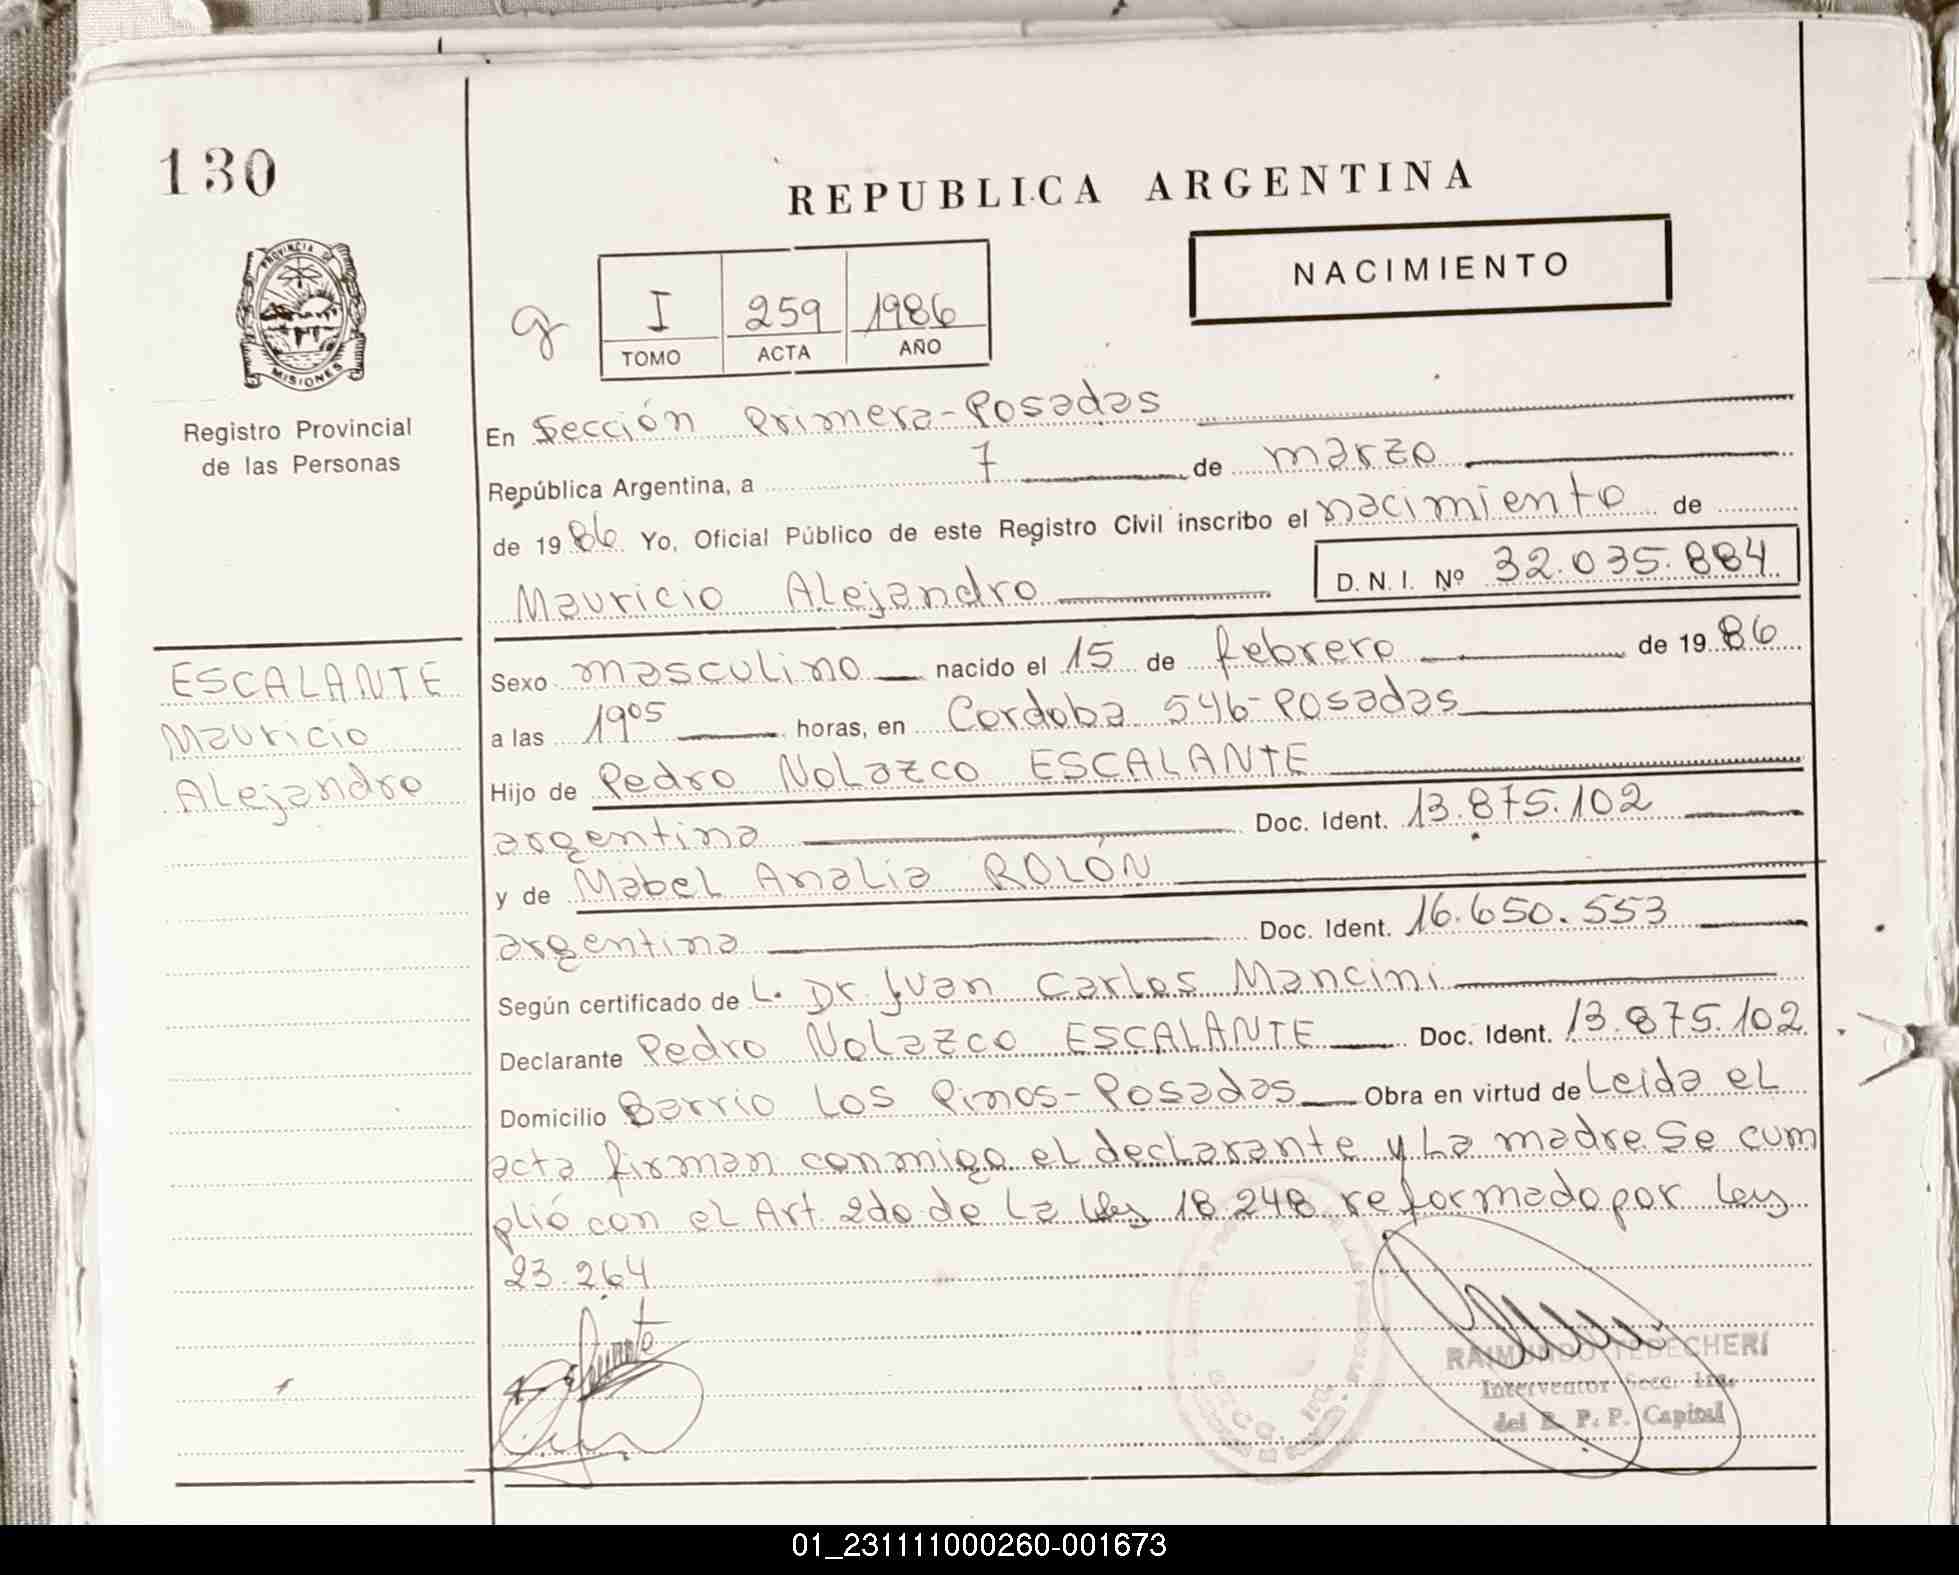 130
REPUBLICA ARGENTINA
NACIMIENTO
PROVINCIA DE
MISIONES
g
I 259 1986
TOMO ACTA AÑO
Registro Provincial
de las Personas
En Sección Primera-Posadas
República Argentina, a 7 de marzo
de 1986 Yo, Oficial Público de este Registro Civil inscribo el nacimiento de
Mauricio Alejandro D. N. I. Nº 32.035.884
ESCALANTE
Mauricio
Alejandro
Sexo masculino nacido el 15 de febrero de 1986
a las 19⁰⁵ horas, en Cordoba 546-Posadas
Hijo de Pedro Nolazco ESCALANTE
argentina Doc. Ident. 13.875.102
y de Mabel Analia ROLÓN
argentina Doc. Ident. 16.650.553
Según certificado de L. Dr. Juan Carlos Mancini
Declarante Pedro Nolazco ESCALANTE Doc. Ident. 13.875.102
Domicilio Barrio Los Pinos-Posadas Obra en virtud de Leida el
acta firman conmigo el declarante y La madre. Se cum
plió con el Art. 2do de La Ley 18.248 reformado por Ley
23.264
RAIMUNDO TEDECHERI
Interventor Secc. 1ra.
del R. P. P. Capital
01_231111000260-001673